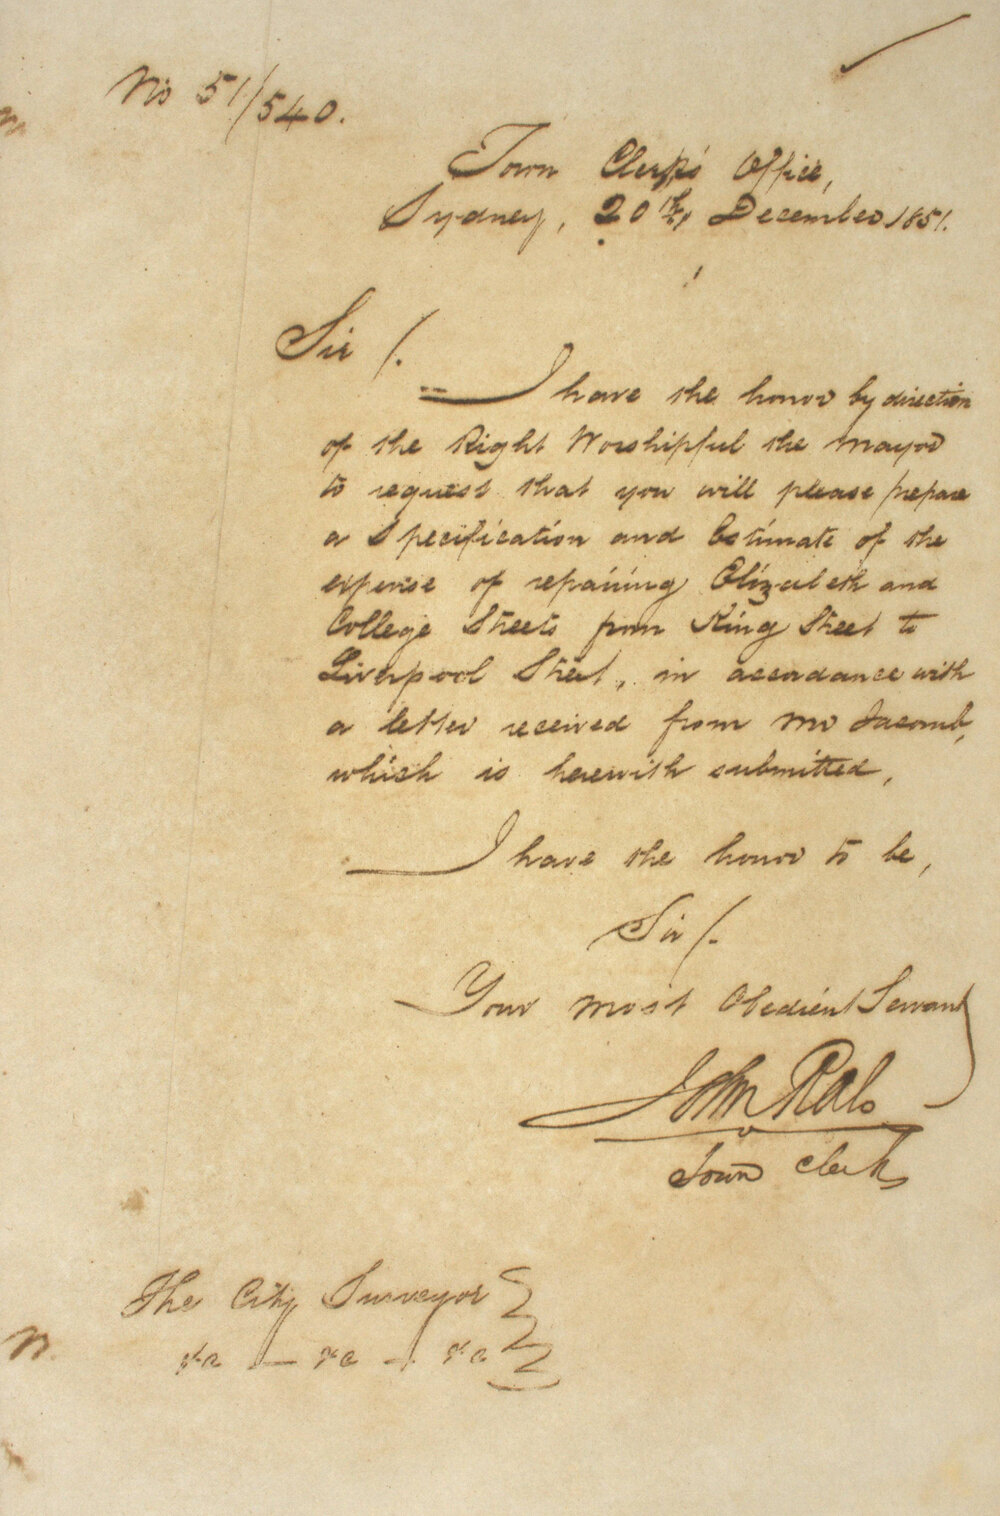 No 51/540.
Town Clerk's Office,
Sydney, 20th December 1851.
Sir /.
I have the honor by direction
of the Right Worshipful the Mayor
to request that you will please prepare
a Specification and Estimate of the
expense of repairing Elizabeth and
College Streets from King Street to
Liverpool Street, in accordance with
a letter received from Mr Jacomb,
which is herewith submitted,
I have the honor to be,
Sir /.
Your most Obedient Servant
John Rae
Town Clerk
The City Surveyor
&c — &c — &c